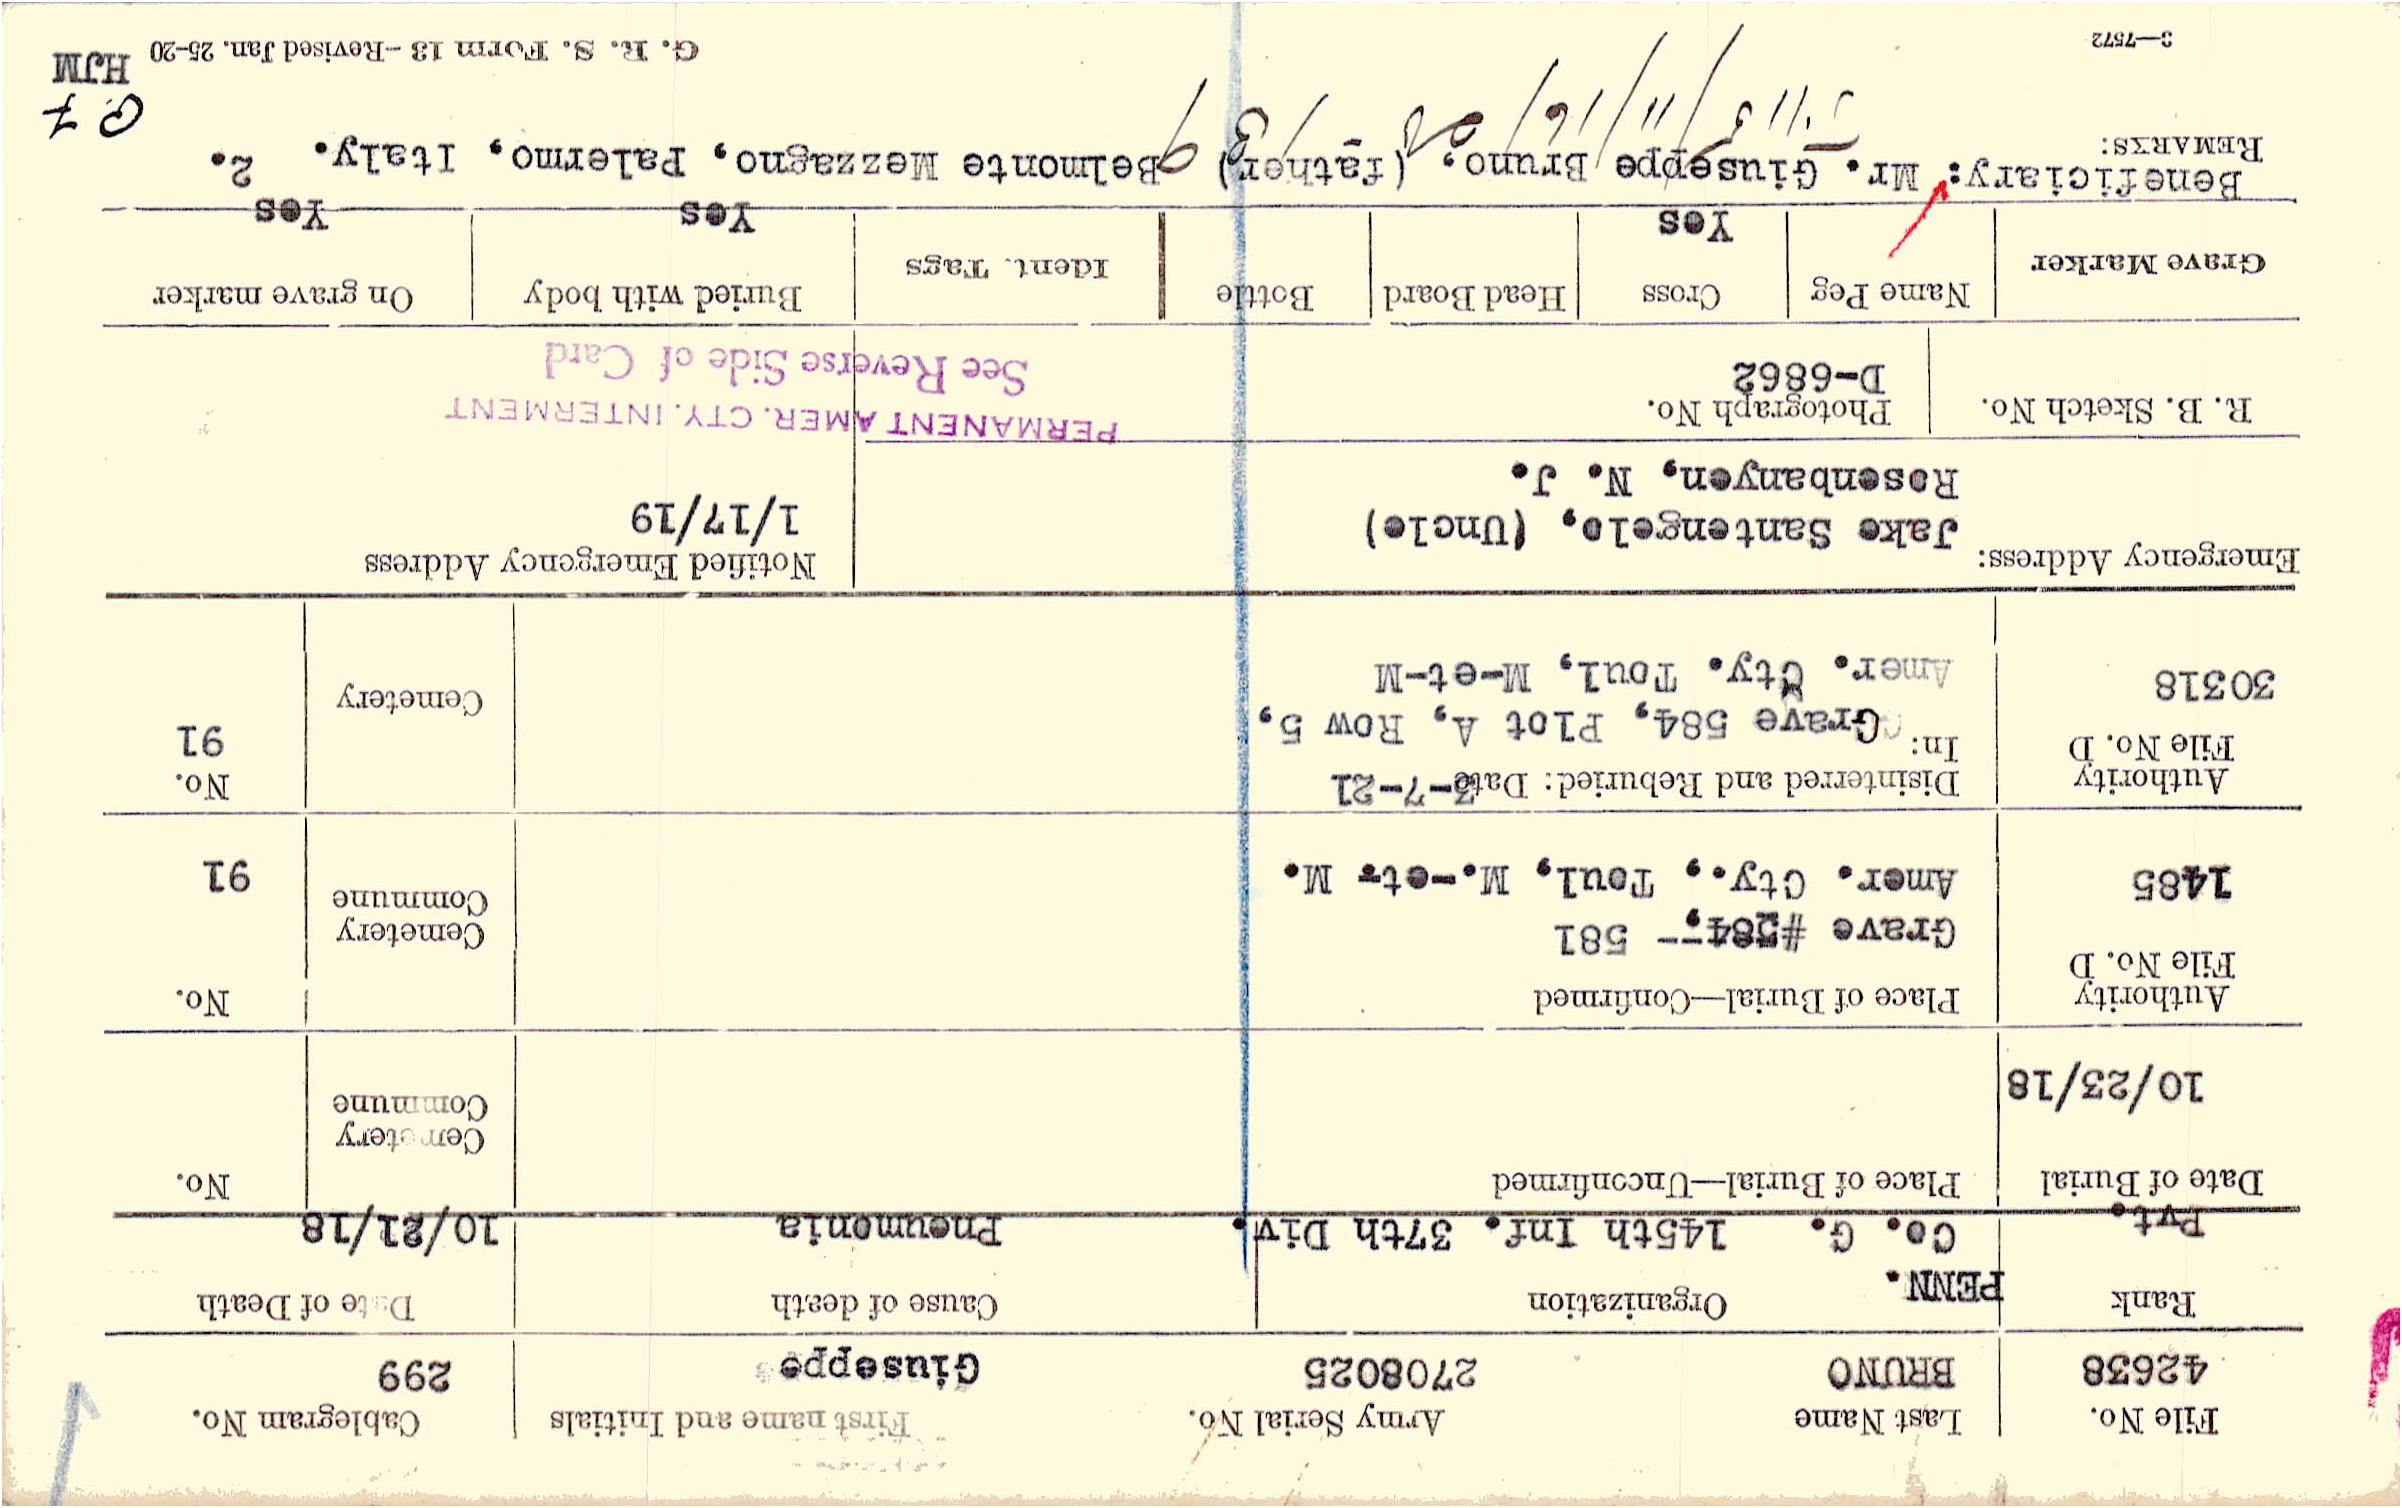 File No. Last Name Army Serial No. First name and Initials Cablegram No.
42638 BRUNO 2708025 Giuseppe 299
Rank PENN. Organization Cause of death Date of Death
Pvt. Co. G. 145th Inf. 37th Div. Pneumonia 10/21/18
Date of Burial Place of Burial—Unconfirmed No.
10/23/18 Cemetery
Commune
Authority Place of Burial—Confirmed No.
File No. D Grave #584-- 581 Cemetery
1485 Amer. Cty., Toul, M.-et- M. Commune 91
Authority Disinterred and Reburied: Date 3-7-21 No.
File No. D In: Grave 584, Plot A, Row 5, 91
30318 Amer. Cty. Toul, M-et-M Cemetery
Emergency Address: Jake Santengelo, (Uncle) Notified Emergency Address
Rosenbanyen, N. J. 1/17/19
PERMANENT AMER. CTY. INTERMENT
R. B. Sketch No. Photograph No. See Reverse Side of Card
D-6862
Grave Marker Name Peg Cross Head Board Bottle Ident. Tags Buried with body On grave marker
Yes Yes Yes
Beneficiary: Mr. Giuseppe Bruno, (father) Belmonte Mezzagno, Palermo, Italy. 2.
REMARKS:
G 7
HJM
3—7572 G. R. S. Form 13—Revised Jan. 25-20